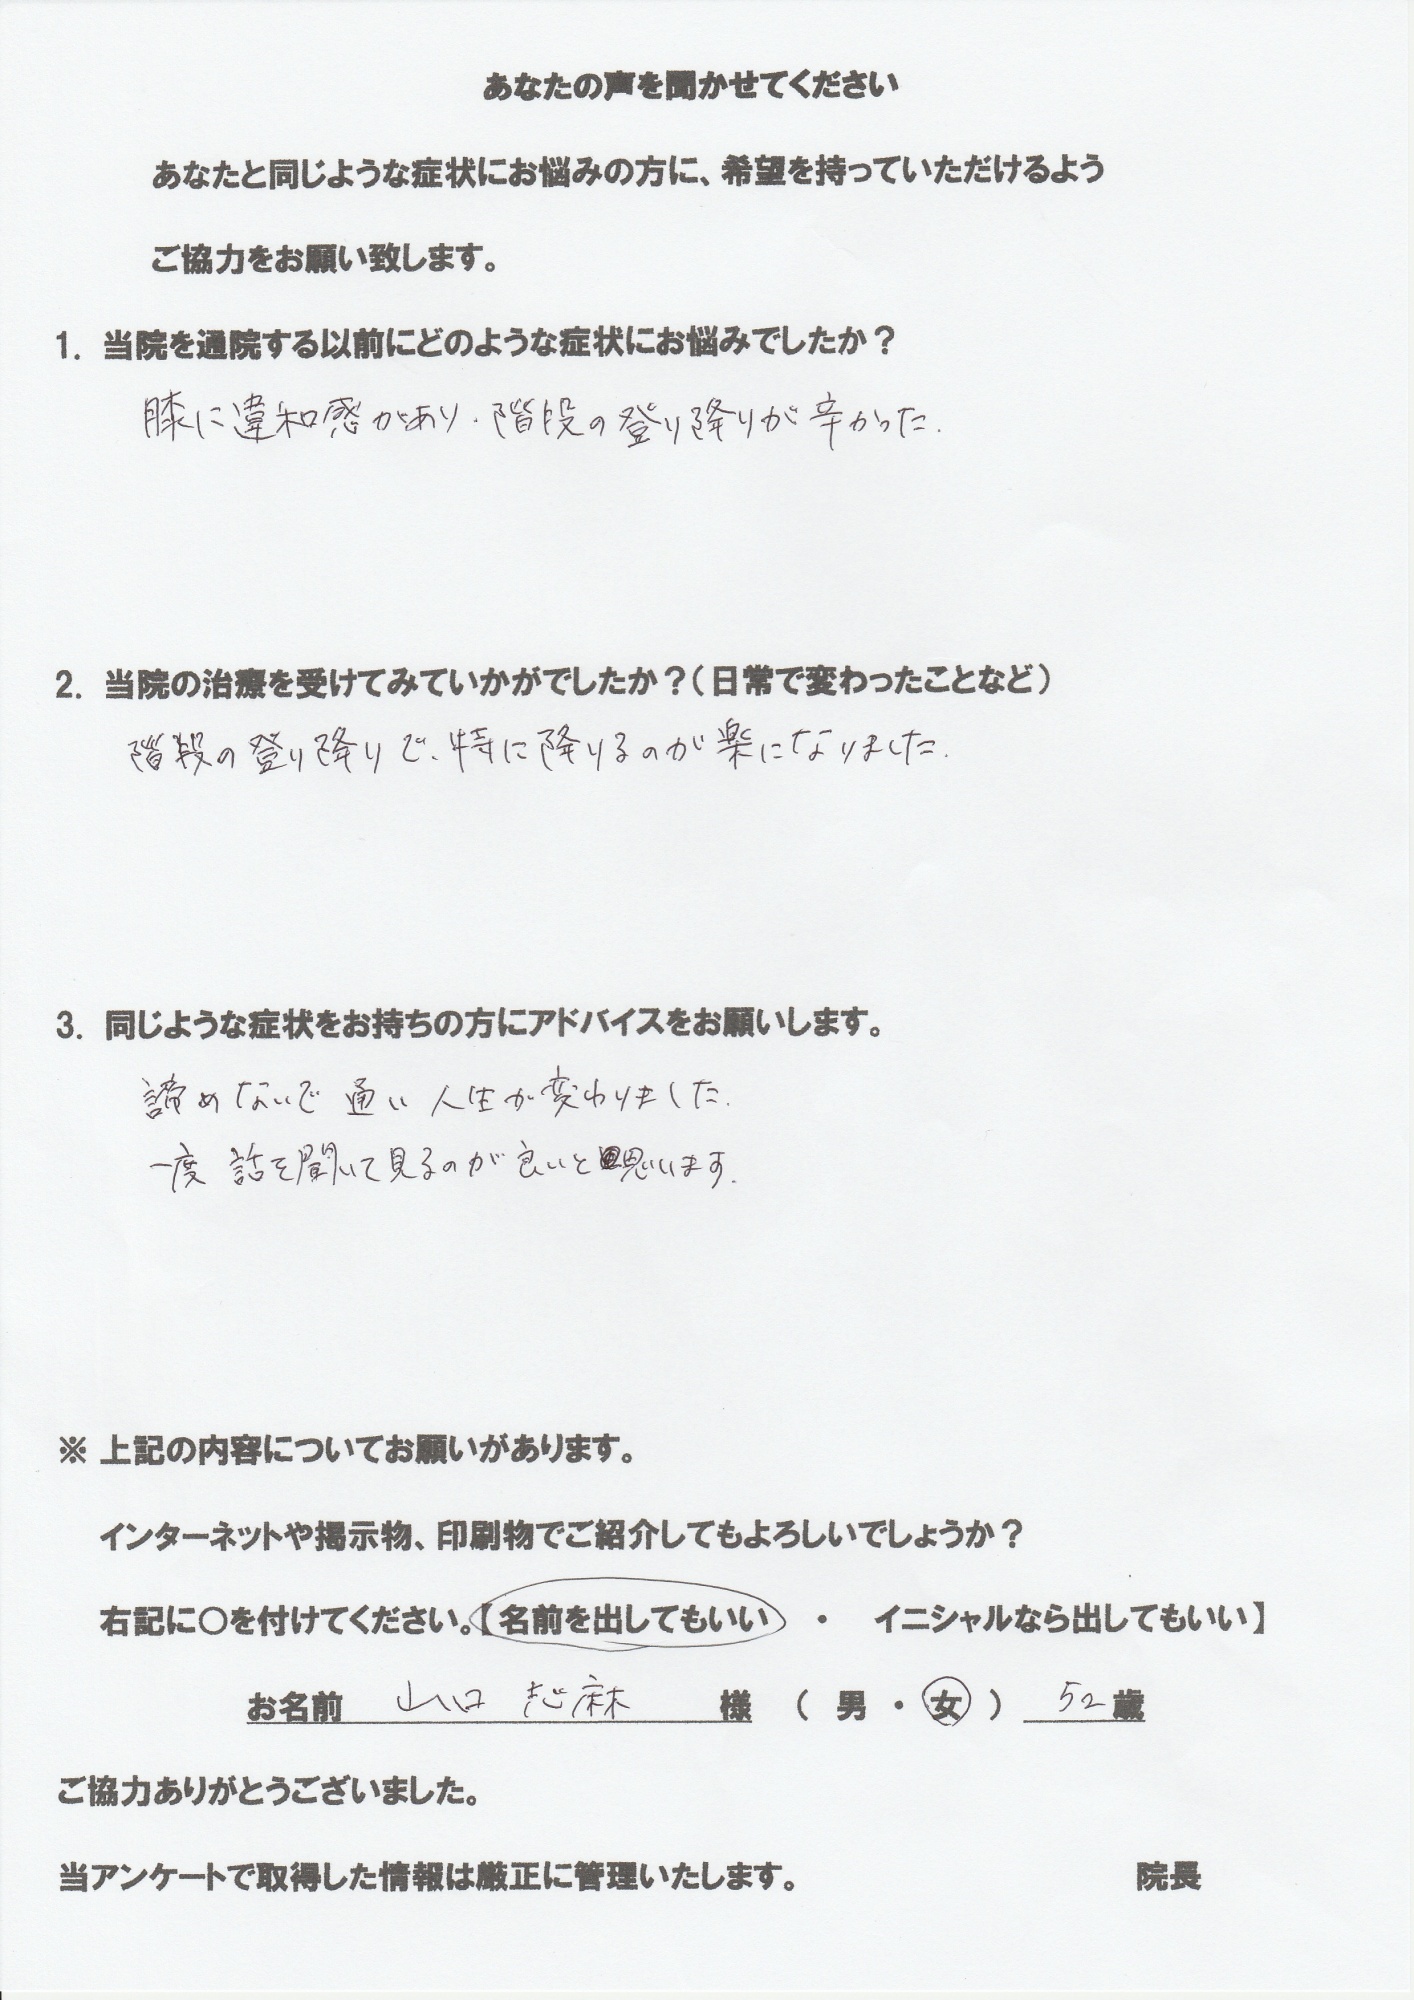 あなたの声を聞かせてください
あなたと同じような症状にお悩みの方に、希望を持っていただけるよう
ご協力をお願い致します。
1. 当院を通院する以前にどのような症状にお悩みでしたか？
膝に違和感があり、階段の登り降りが辛かった。
2. 当院の治療を受けてみていかがでしたか？（日常で変わったことなど）
階段の登り降りで、特に降りるのが楽になりました。
3. 同じような症状をお持ちの方にアドバイスをお願いします。
諦めないで 通い 人生が変わりました。
一度 話を聞いて見るのが良いと思います。
※ 上記の内容についてお願いがあります。
インターネットや掲示物、印刷物でご紹介してもよろしいでしょうか？
右記に○を付けてください。【名前を出してもいい ・ イニシャルなら出してもいい】
お名前 山口 志麻 様 （ 男 ・ 女 ） 52歳
ご協力ありがとうございました。
当アンケートで取得した情報は厳正に管理いたします。 院長